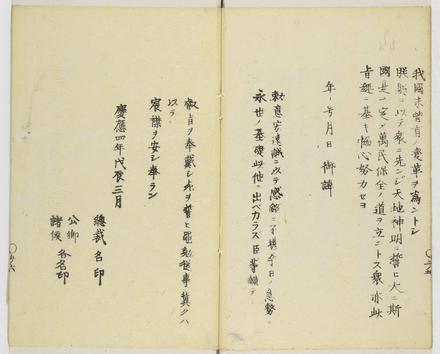 我國未曾有ノ變革ヲ為ントシ
朕躬ヲ以テ衆ニ先ンジ天地神明ニ誓ヒ大ニ斯
國是ヲ定メ萬民保全ノ道ヲ立ントス衆亦此
旨趣ニ基キ協心努力セヨ
年号月日 御諱
勅意宏遠誠ニ以テ感銘ニ不堪今日ノ急務
永世ノ基礎此他ニ出ベカラス臣等謹テ
叡旨ヲ奉戴シ死ヲ誓ヒ黽勉從事冀クハ
以テ
宸襟ヲ安シ奉ラン
慶應四年戊辰三月
總裁名印
公卿
諸侯 各名印